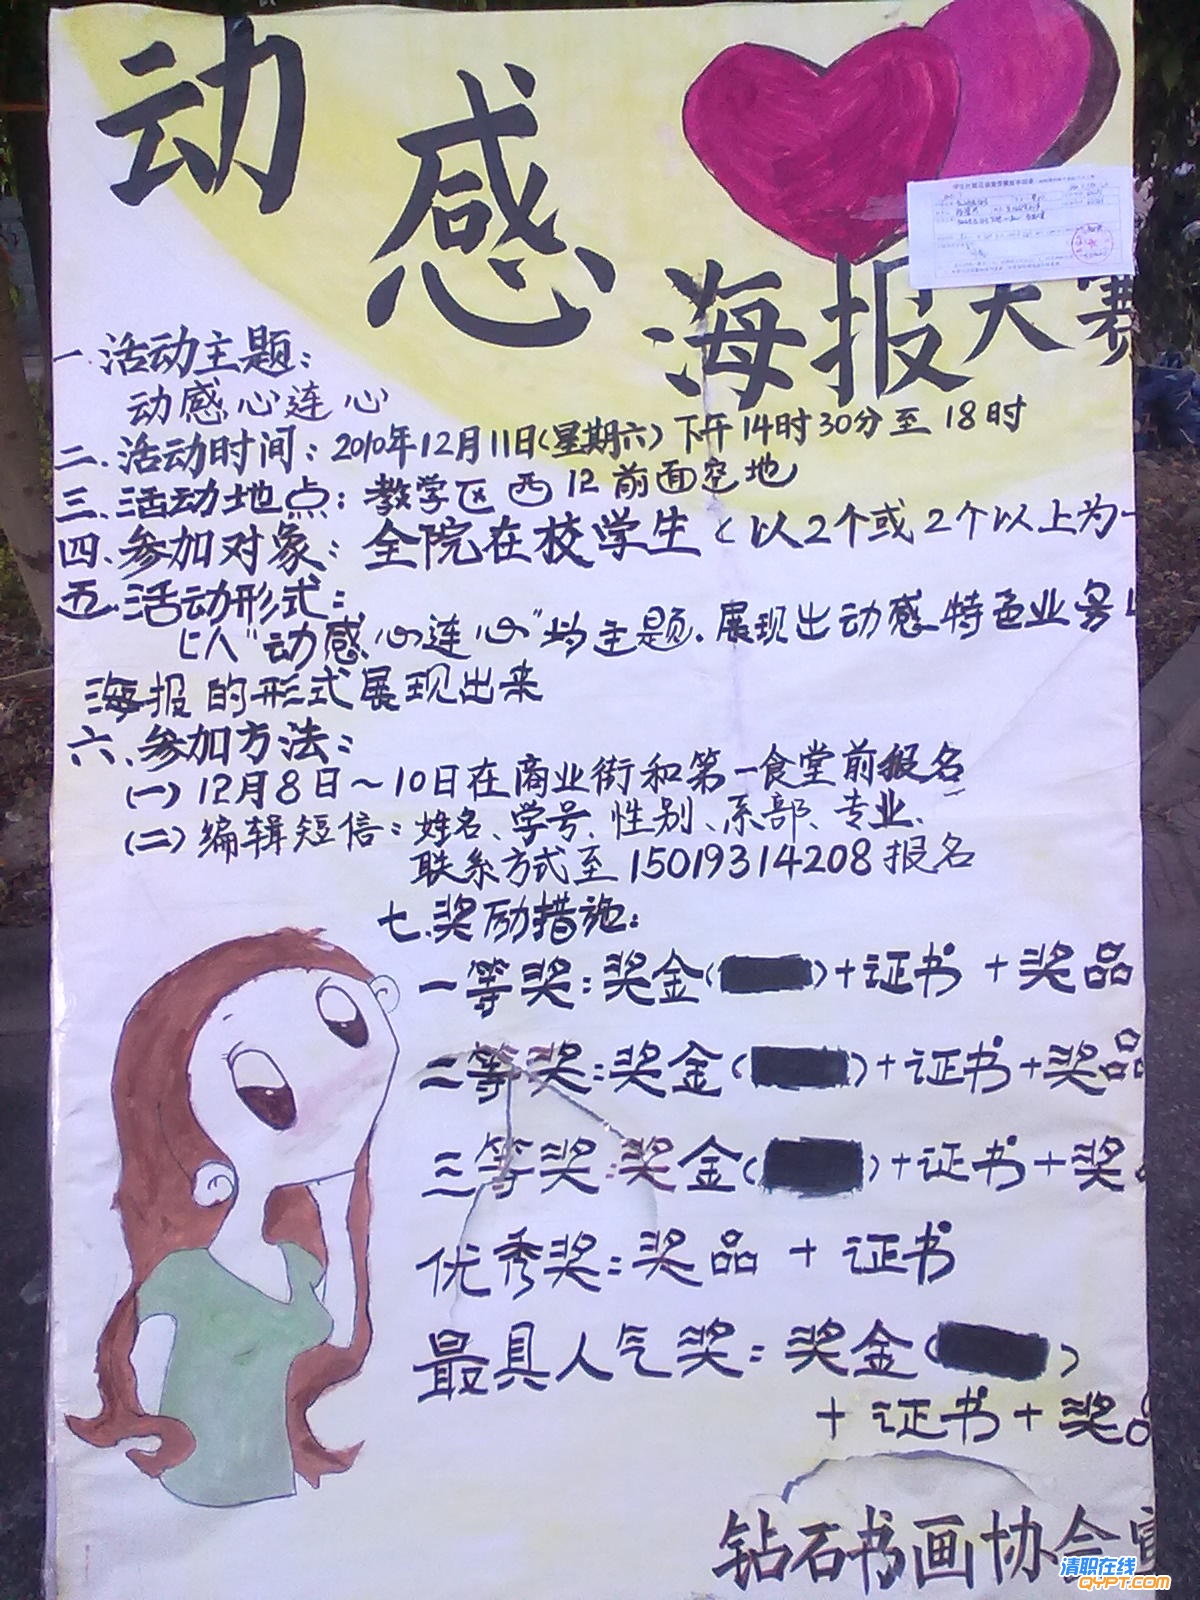 动感
海报大赛
一.活动主题:
动感心连心
二.活动时间:2010年12月11日(星期六)下午14时30分至18时
三.活动地点:教学区西12前面空地
四.参加对象:全院在校学生(以2个或2个以上为一
五.活动形式:
以“动感心连心”为主题.展现出动感特色业务以
海报的形式展现出来
六.参加方法:
(一)12月8日~10日在商业街和第一食堂前报名
(二)编辑短信:姓名、学号、性别、系部、专业、
联系方式至15019314208报名
七.奖励措施:
一等奖:奖金( )+证书+奖品
二等奖:奖金( )+证书+奖品
三等奖:奖金( )+证书+奖品
优秀奖:奖品+证书
最具人气奖:奖金( )
+证书+奖品
钻石书画协会宣
清职在线
QYPT.COM